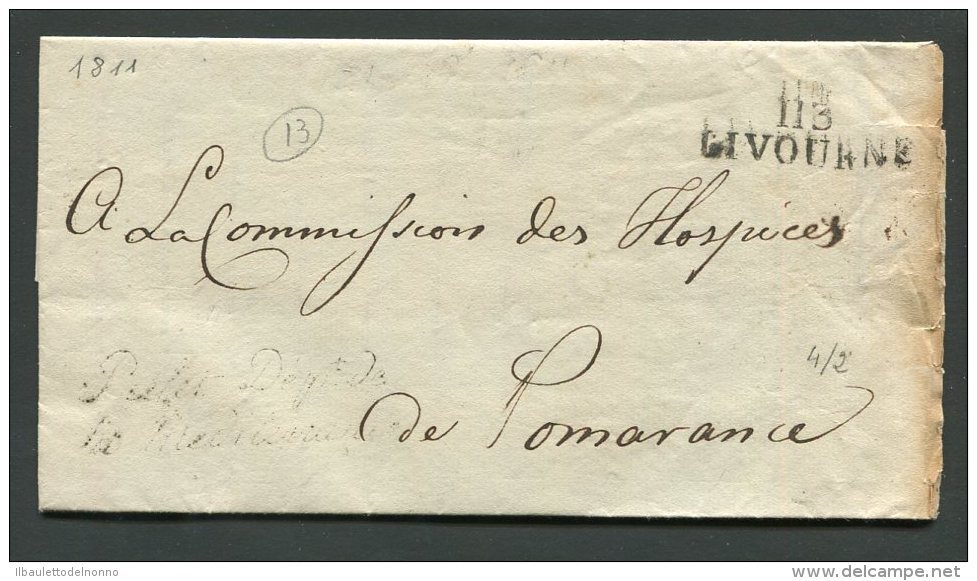 1811
13
113
LIVOURNE
A La Commission des Hospices
4/2
Prefet Dépt. de
la
de Pomarance
ilbaulettodelnonno
http://www.delcampe.net